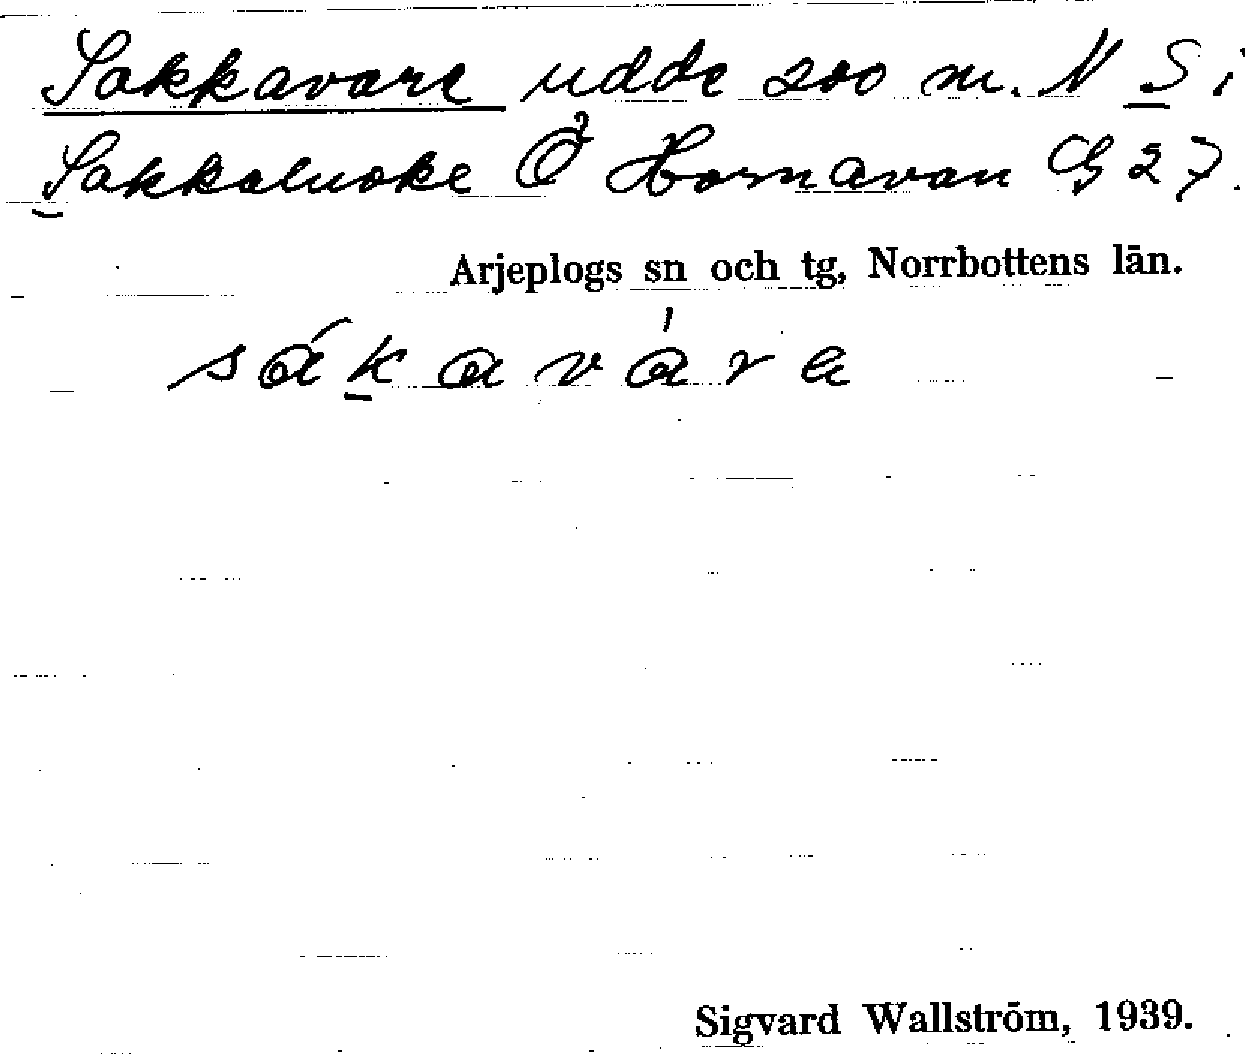 Sakkavare udde 200 m. N S i
Sakkaluoke Ö Hornavan G 27.
Arjeplogs sn och tg, Norrbottens län.
sákavárɐ
Sigvard Wallström, 1939.